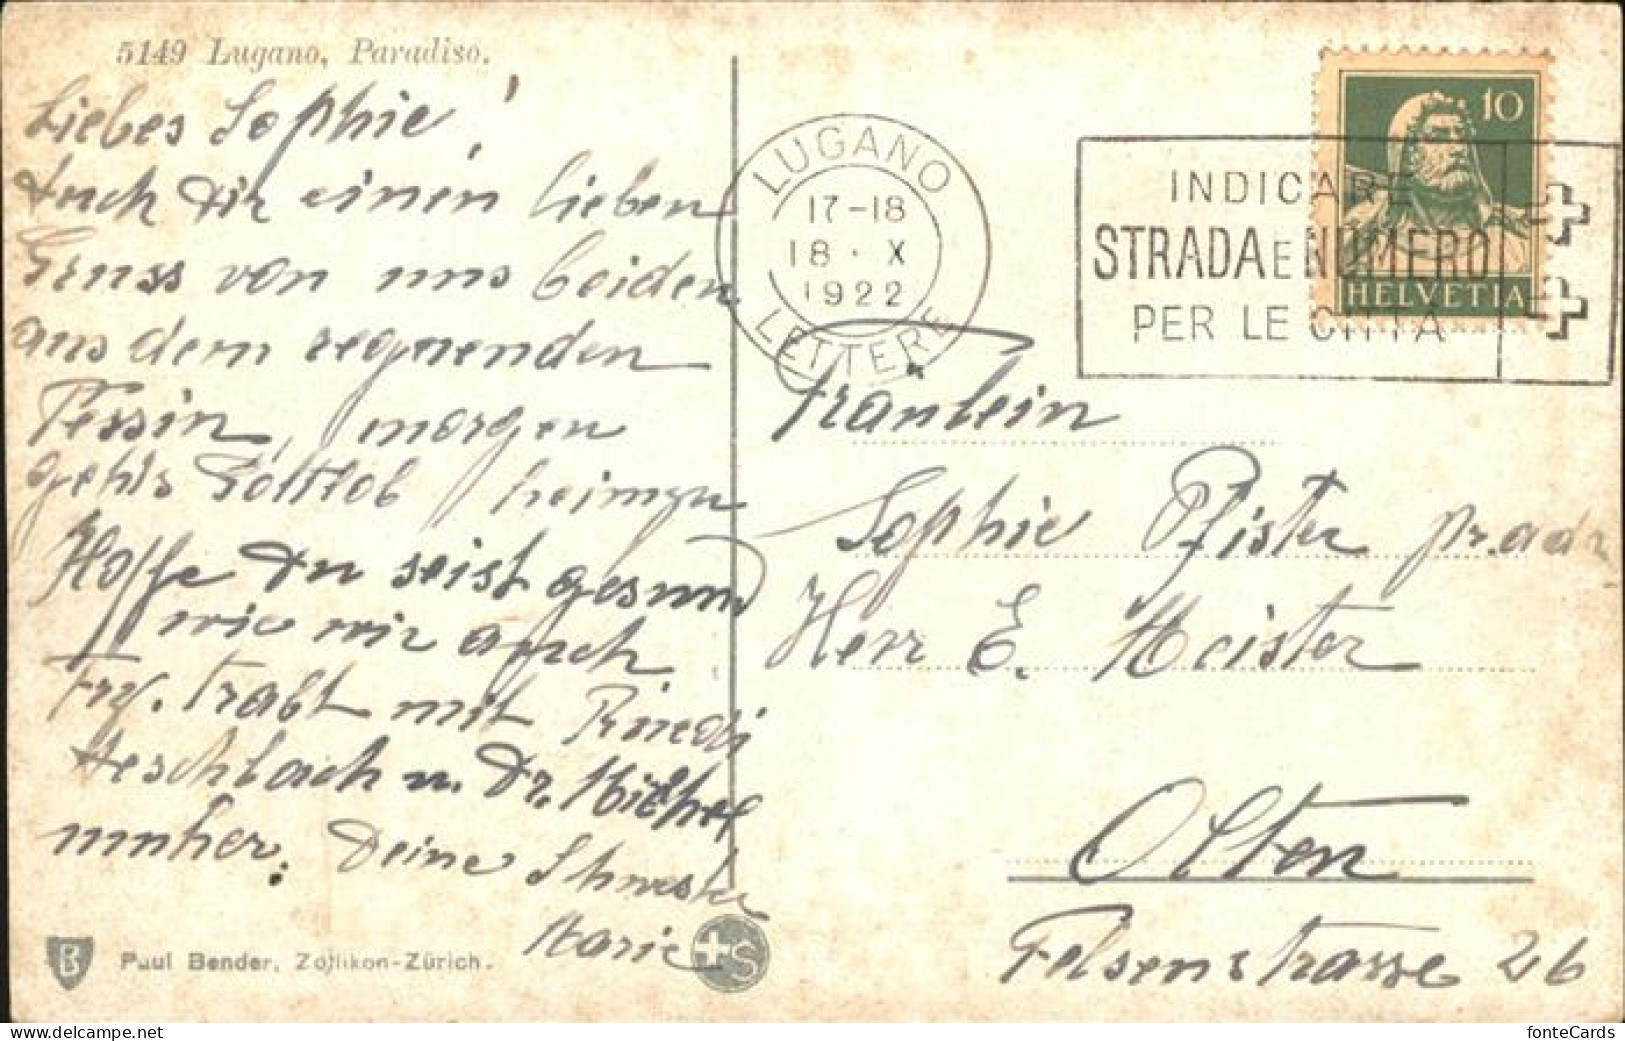 5149 Lugano, Paradiso.
Liebes Sophie!
Auch Dir einen lieben
Gruss von uns beiden
aus dem regnenden
Tessin, morgen
gehts Gottlob heimzu
Hoffe Du seist gesund
wie wir auch
Frz. trabt mit Ruedi
Aeschbach u. Dr.
umher. Deine Schwester
Marie
Paul Bender, Zollikon-Zürich.
LUGANO
17-18
18 · X
1922
LETTERE
INDICARE
STRADA E NUMERO
PER LE CITTÀ
10
HELVETIA
Fräulein
Sophie Pfister pr. adr
Herr E. Meister
Olten
Felsenstrasse 26
fonteCards